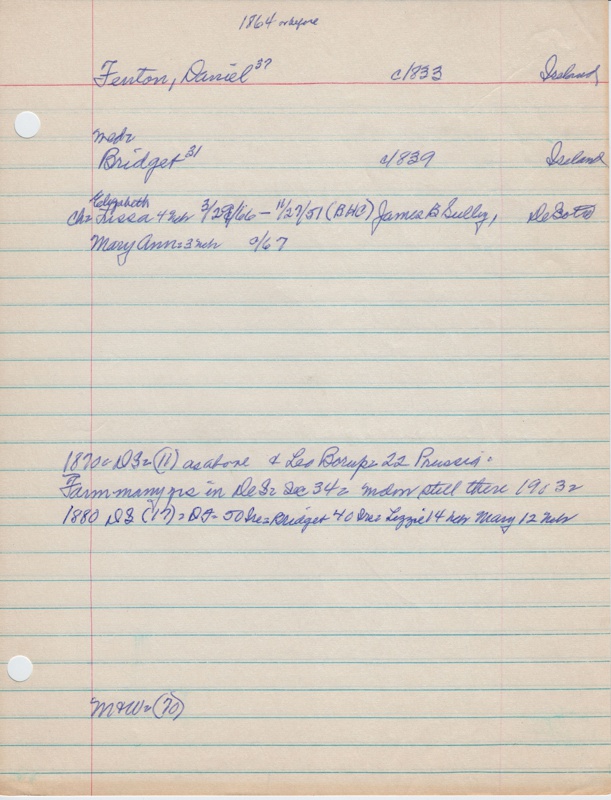 1864 or before
Fenton, Daniel 37 c1833 Ireland
md=
Bridget 31 c1839 Ireland
Elizabeth
Ch= Lissa 4 Nebr 3/29/66 - 11/27/51 (BHC) James B Sully, DeSoto
Mary Ann = 3 Nebr 9/67
1870= DS= (11) as above & Leo Borup= 22 Prussia=
Farm many yrs in DeS= Sec 34= mdm still there 1903=
1880 DS (17)= DF= 50 Ire= Bridget 40 Ire= Lizzie 14 Nebr Mary 12 Nebr
M&W= (70)